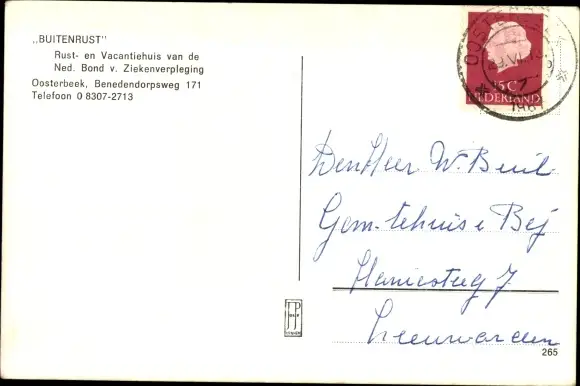 „BUITENRUST"
Rust- en Vacantiehuis van de
Ned. Bond v. Ziekenverpleging
Oosterbeek, Benedendorpsweg 171
Telefoon 0 8307-2713
OOSTERBEEK
15 C
NEDERLAND
Den Heer W. Beul
Gem. tehuis Bej
7
Leeuwarden
JP
265